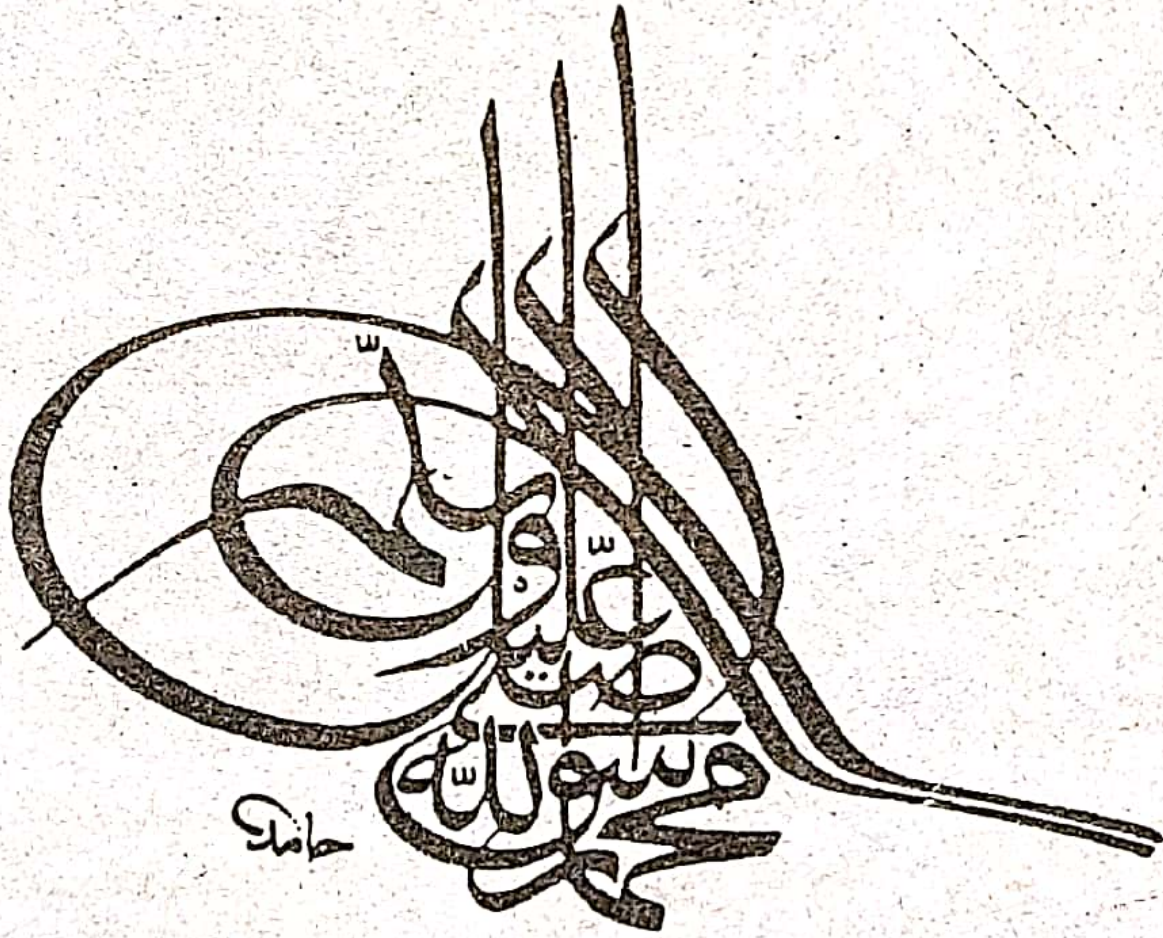 محمد رسول الله
صلى الله عليه وسلم
حامد